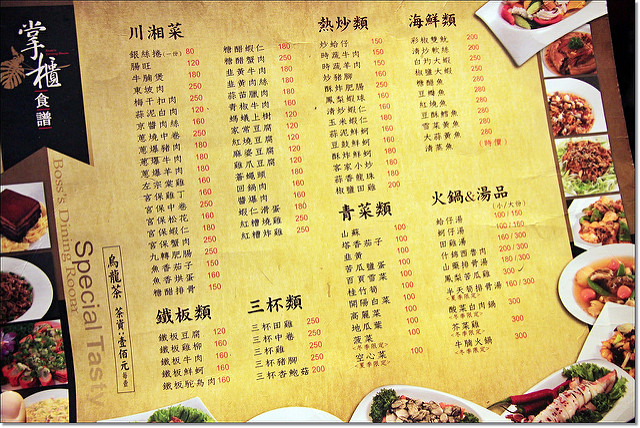 掌櫃
食譜
Boss's Dining Room
Special Tasty
烏龍茶 茶資:壹佰元
川湘菜
銀絲捲(一份) 80
腸旺 120
牛腩煲 180
東坡肉 250
梅干扣肉 250
蒜泥白肉 120
京醬肉絲 160
紅燒中卷 250
蔥爆豬肉 160
蔥爆牛肉 180
蔥爆羊肉 180
左宗棠雞
宮保雞丁 160
宮保中卷 250
宮保松花 160
宮保蝦仁 180
宮保蟹肉 250
九轉肥腸
魚香茄子 150
魚香烘蛋 150
糖醋排骨 150
糖醋蝦仁 180
糖醋蟹肉 250
韭黃牛肉 180
韭黃肉絲
蒜苗臘肉
青椒牛肉
螞蟻上樹 120
家常豆腐
紅燒豆腐
麻婆豆腐
雞爪豆腐
蒼蠅頭
回鍋肉
醬爆肉
蝦仁滑蛋 180
紅糟燒雞
紅糟炸雞
熱炒類
炒蛤仔 150
時蔬牛肉 150
時蔬羊肉 150
炒豬腳
酥炸肥腸
鳳梨蝦球 160
清炒蝦仁
玉米蝦仁 180
蒜泥鮮蚵 160
豆鼓鮮蚵 160
酥炸鮮蚵 160
客家小炒
蒜香龍珠
椒鹽田雞 200
海鮮類
彩椒雙魷 200
清炒軟絲 200
白灼大蝦 250
椒鹽大蝦 250
糖醋魚 280
豆瓣魚 280
紅燒魚 280
豆酥鱈魚 280
雪菜黃魚 280
大蒜黃魚 280
清蒸魚 (時價)
鐵板類
鐵板豆腐 120
鐵板雞柳 160
鐵板牛肉 160
鐵板鮮蚵 160
鐵板駝鳥肉 160
三杯類
三杯田雞 250
三杯中卷 250
三杯雞 250
三杯豬腳 250
三杯杏鮑菇 200
青菜類
山蘇 100
塔香茄子 100
韭黃 100
苦瓜鹽蛋 100
百頁雪菜 100
桂竹筍 100
開陽白菜 100
高麗菜 100
地瓜葉 100
菠菜 100
~冬季限定~
空心菜 100
~夏季限定~
火鍋&湯品
(小/大份)
蛤仔湯 100/150
蚵仔湯 100/150
田雞湯 160/300
什錦酉魯肉 200/300
山藥排骨湯 180/300
鳳梨苦瓜雞 300
半天筍排骨湯 160/300
~夏季限定~
酸菜白肉鍋 300
~冬季限定~
芥菜雞 300
~冬季限定~
牛腩火鍋 300
~冬季限定~